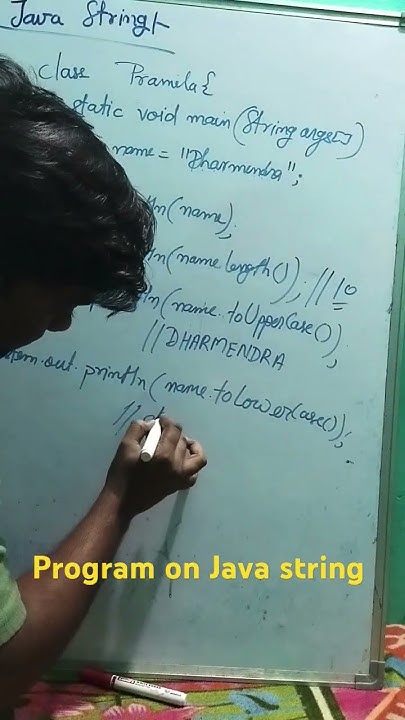 Java String
class Pramila{
static void main(String args[])
name = "Dharmendra";
ln(name);
ln(name.length()); // 10
ln(name.toUpperCase());
// DHARMENDRA
tem.out.println(name.toLowerCase());
// d
Program on Java string